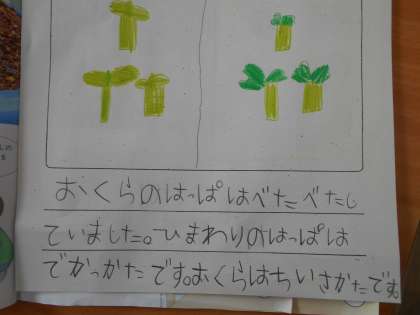 おくらのはっぱはべたべたし
ていました。ひまわりのはっぱは
でかっかたです。おくらはちいさかたです。